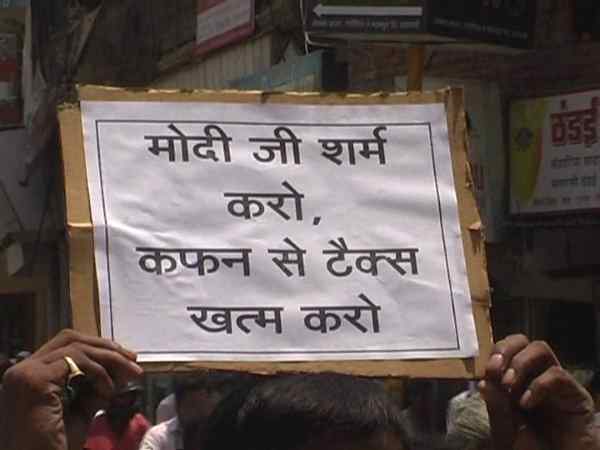 मोदी जी शर्म
करो,
कफन से टैक्स
खत्म करो
ठंडाई